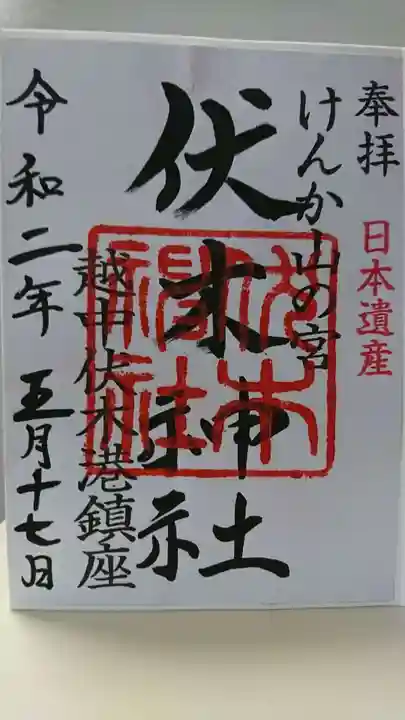 奉拝
日本遺産
けんか山の宮
伏木神社
伏木神社
越中伏木港鎮座
令和二年五月十七日